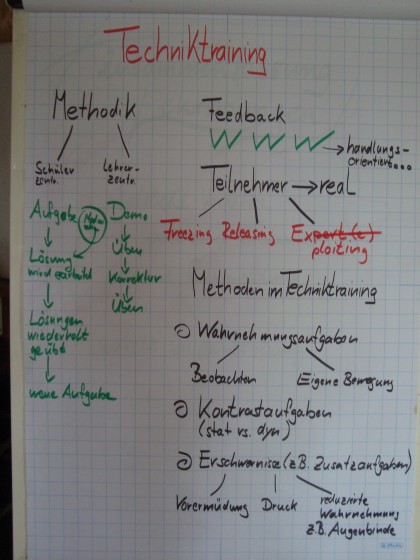 Techniktraining
Methodik
Schüler zentr.
Lehrer-zentr.
Aufgabe
Lösung
wird gesucht
Lösungen
wiederholt
geübt
neue Aufgabe
Demo
Üben
Korrektur
Üben
Feedback
W W W
handlungs-
orientiert...
Teilnehmer → real
Freezing Releasing Expert(e)
ploiting
Methoden im Techniktraining
Wahrnehmungsaufgaben
Beobachten Eigene Bewegung
Kontrastaufgaben
(stat vs. dyn)
Erschwernise (z.B. Zusatzaufgaben)
Vorermüdung Druck reduzierte
Wahrnehmung
z.B. Augenbinde